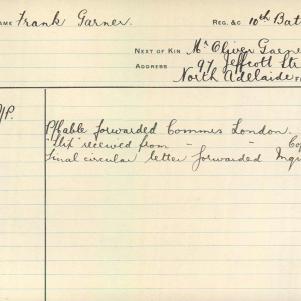 AME Frank Garner. REG. &C 10th Bat
NEXT OF KIN Mr Oliver Garne
ADDRESS 97 Jeffcott Str
North Adelaide
/P. P/Cable forwarded Commrs London.
"Slip" received from - - Cop
Final circular letter forwarded Inqu